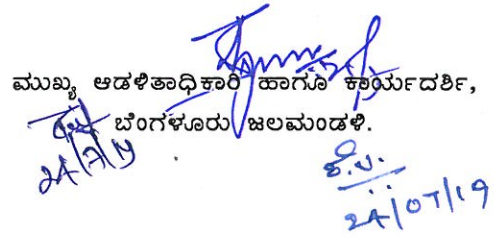 ಮುಖ್ಯ ಆಡಳಿತಾಧಿಕಾರಿ ಹಾಗೂ ಕಾರ್ಯದರ್ಶಿ,
ಬೆಂಗಳೂರು ಜಲಮಂಡಳಿ.
24/7/19
24/07/19